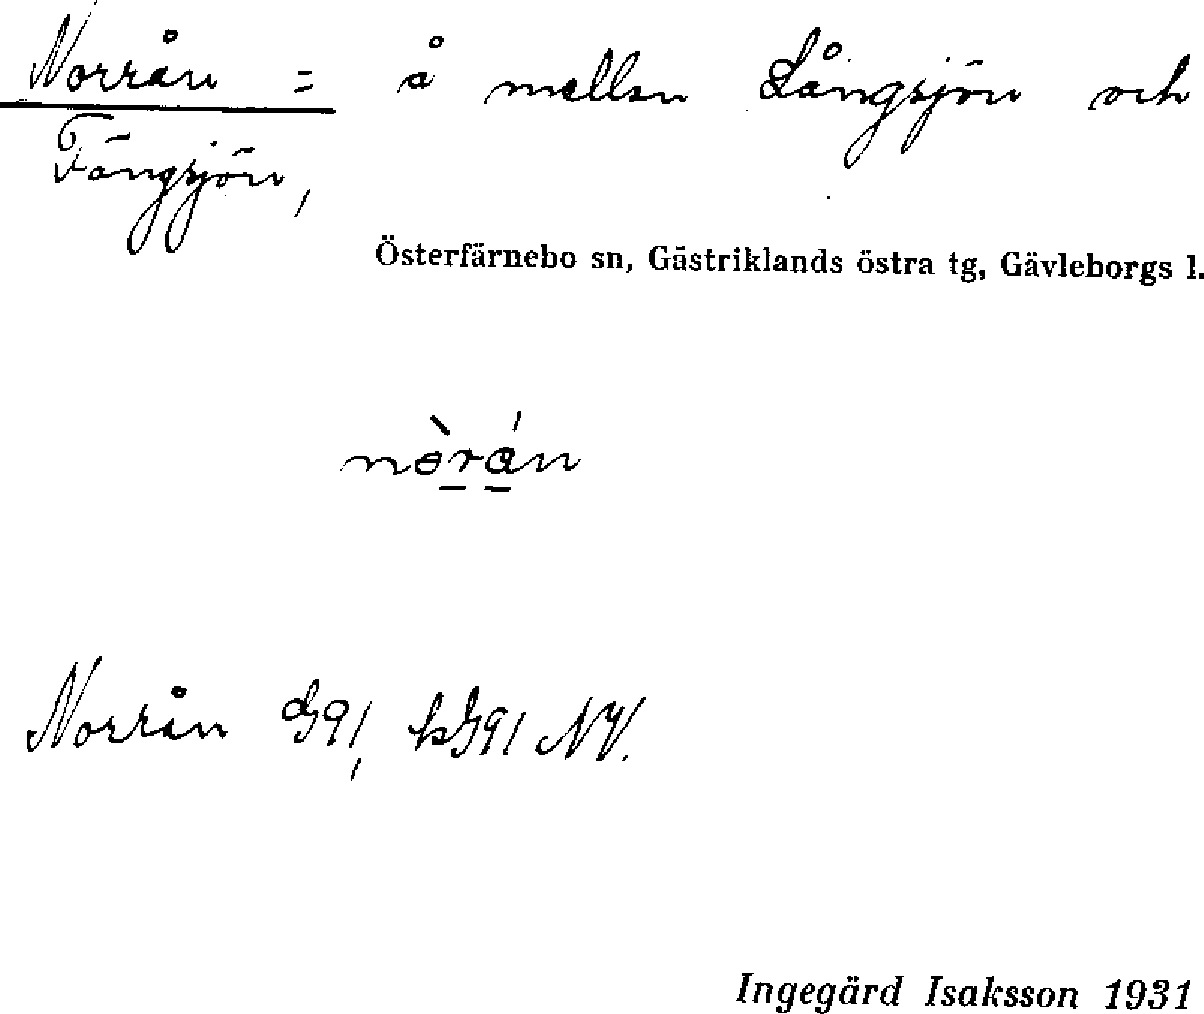 Norrån = å mellan Långsjön och
Fängsjön,
Österfärnebo sn, Gästriklands östra tg, Gävleborgs l.
nòrán
Norrån G91, kG91 NV.
Ingegärd Isaksson 1931